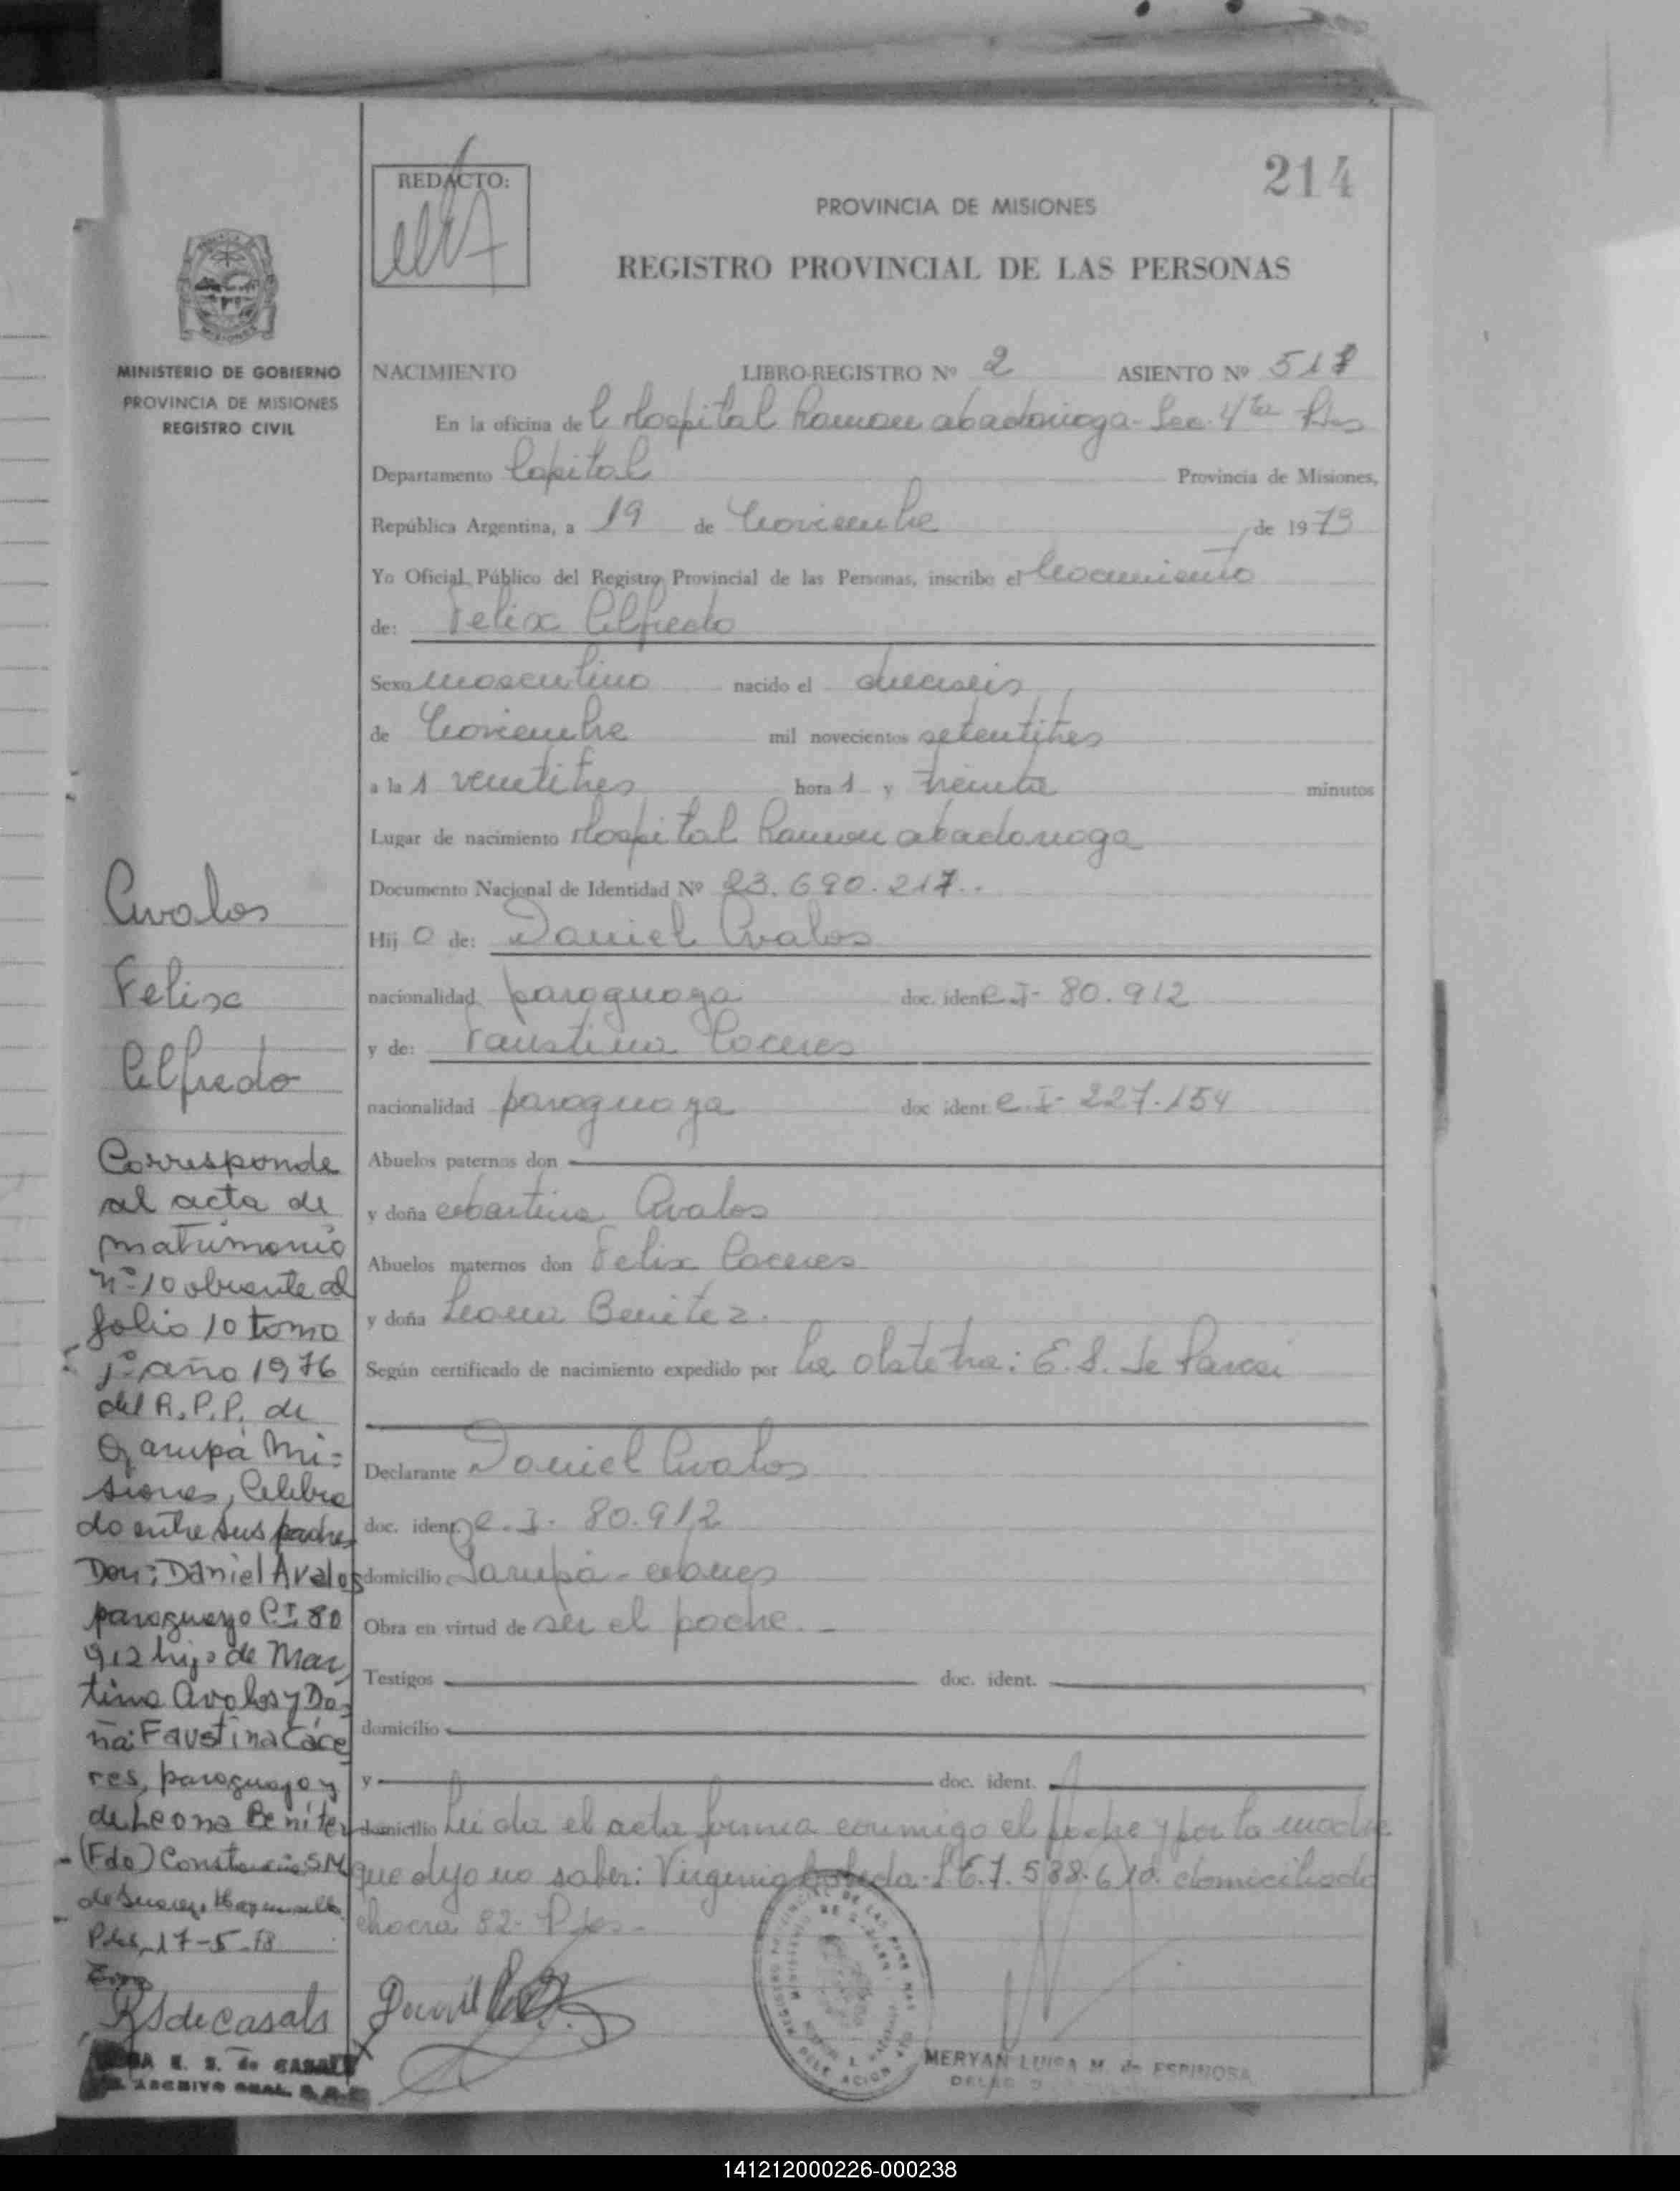 214
REDACTO:
PROVINCIA DE MISIONES
REGISTRO PROVINCIAL DE LAS PERSONAS
MINISTERIO DE GOBIERNO
PROVINCIA DE MISIONES
REGISTRO CIVIL
NACIMIENTO LIBRO-REGISTRO Nº 2 ASIENTO Nº 517
En la oficina de l Hospital Ramon abadonioga - Sec. 4ta Pdas
Departamento Capital Provincia de Misiones,
República Argentina, a 19 de Noviembre de 1973
Yo Oficial Público del Registro Provincial de las Personas, inscribo el Nacimiento
de: Felix Alfredo
Sexo masculino nacido el dieciseis
de Noviembre mil novecientos setentitres
a las veintitres horas y treinta minutos
Lugar de nacimiento Hospital Ramon abadonioga
Documento Nacional de Identidad Nº 23.690.217..
Hijo de: Daniel Avalos
nacionalidad paraguaya doc. ident. C.I- 80.912
y de: Faustina Caceres
nacionalidad paraguaya doc ident C.I- 227.154
Abuelos paternos don
y doña Martina Avalos
Abuelos maternos don Felix Caceres
y doña Leona Benitez.
Según certificado de nacimiento expedido por la obstetra: E.S. de
Declarante Daniel Avalos
doc. ident. C.I- 80.912
domicilio Garupa - Mnes
Obra en virtud de ser el padre. -
Testigos doc. ident.
domicilio
y doc. ident.
domicilio Leida el acta firma conmigo el padre y por la madre
que dijo no saber: Virginia L.E.7.588.610 domiciliada
chacra 82- Pdas-
Avalos
Felix
Alfredo
Corresponde
al acta de
matrimonio
nº 10 obrante al
folio 10 tomo
1º año 1976
del R.P.P. de
Garupá Mi-
siones, Celebra
do entre sus padres
Don: Daniel Avalos
paraguayo C.I 80
912 hijo de Mar
tina Avalos y Do-
ña: Faustina Cáce
res, paraguayo y
de Leona Benitez
(Fdo) Constancia S.M
de Suarez
Pdas, 17-5-78
RSdeCasals
E. S. de CASALS
ARCHIVO GRAL.
MERYAN LUISA M. de ESPINOSA
141212000226-000238